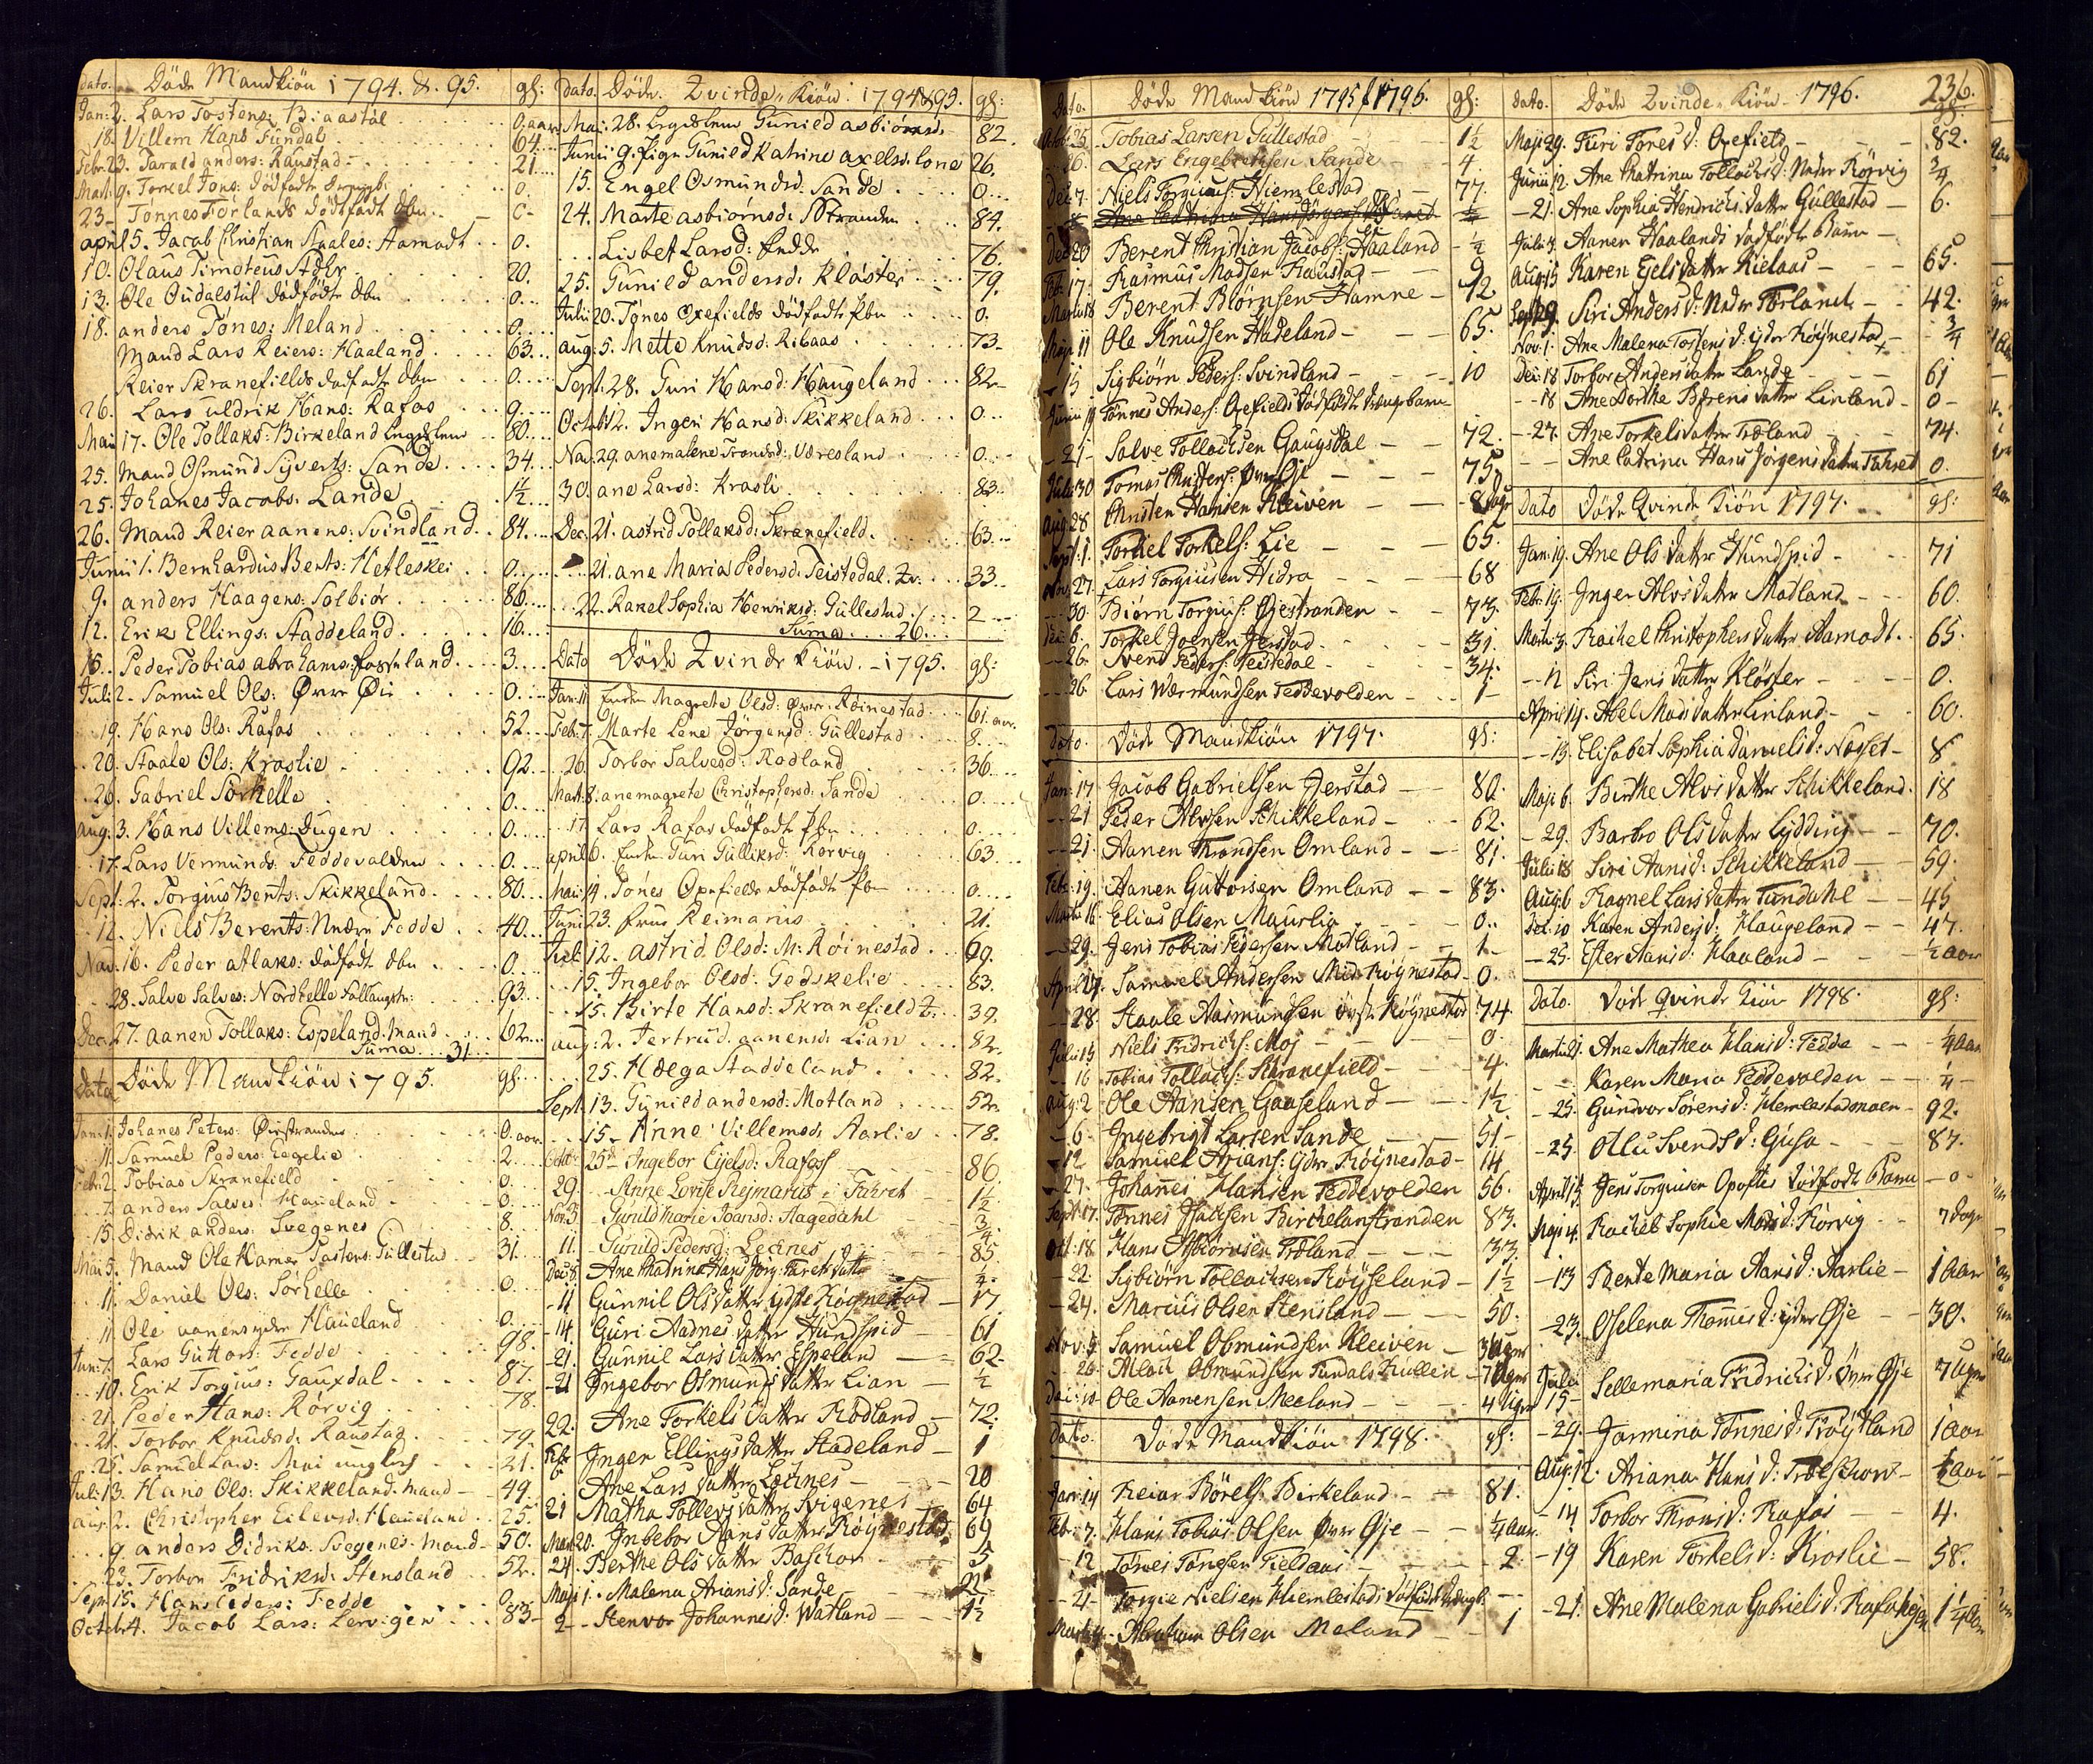 dato. Döde Mandkiön 1794. & 95. gl:
Jan: 2. Lars Tostens: Braastöl 0. aar
18. Villem Hans Fundal 64
Febr: 23. Tarald anders: Raustad 21
Mart: 9. Torkel Jons: dödfödte drengb: 0.
23 Tönnes Förlands dödfödt dbn. 0
april 5. Jacob Christian Staales: Aamodt 0.
10. Olaus Timoteus Adlr 20.
13. Ole Oudalstøl dödfödte dbn 0
18. anders Tönes: Meland 0
Mand Lars Reiers: Haaland 63
Reier Skranefields dödfödte dbn 0
26. Lars uldrik Hans: Rafos 9
Mai 17. Ole Tollaks: Birkeland Legdslem 80
25. Mand Osmund Syverts: Sande 34
25. Johanes Jacobs: Lande 1½
26. Mand Reier aanens: Svindland 84
Junii 1. Bernhardus Bents: Hetleskei 0
9. anders Haagens: Solbiör 86
12. Erik Ellings: Staddeland 16
15. Peder Tobias abrahams: fosseland 3
Juli 2. Samuel Ols: Øvre Øie 0
19. Hans Ols: Rafos 52
20. Staale Ols: Kraslie 92
26. Gabriel Sörhelle 0
aug: 3. Hans Villems: Dugen 0
17. Lars Vermunds: Feddevolden 0
Sept: 2. Torgius Bents: Skikkeland 80
12. Niels Berents: Nedre Fedde 40
Nov: 16. Peder atlaks: dödfödt dbn 0
28. Salve Salves: Nordhelle 93
Dec: 27. aanen Tollaks: Espeland. mand 62
Suma 31
Dato Döde Mandkiön 1795. gl:
Jan: 1. Johanes Peters: Øiestranden 0. aar
11. Samuel Peders: Eegelie 2
Febr: 2. Tobias Skranefield 0
7. anders Salves: Haueland 0
15. Didrik anders: Svegenes 8
Mai 5. Mand Ole Hamer Tostens: Gullestad 31
11. Daniel Ols: Sörhelle 0
11. Ole aanens: ydre Haueland 0
Jun: 7. Lars Guttors: Fedde 98.
10. Erik Torgius: Gauxdal 87.
21. Peder Hans: Rörvig 78.
21. Torbor Knudsd: Raustad 79
25. Samuel Lars: Moi ungkarl 21.
Juli: 13. Hans Ols: Skikkeland. mand 49.
aug: 2. Christopher Eilevs: Haueland 25.
9. anders Didriks: Svegenes. mand 50.
23. Torbor Fridriksd: Stensland 52.
Sept: 15. Hans Peders: Fedde 0
Octobr: 4. Jacob Lars: Lervigen 83
dato. Döde Zvinde-Kiön 1794 & 95. gl:
Mai: 28. Legdslem Gunild asbiörnsd: 82.
Junii 9. Pige Gunild Katrine axelsd: lone 26.
15. Engel Osmundsd: Sande 0
24. Marte asbiörnsd: Stranden 84.
Lisbet Larsd: Fedde 76.
25. Gunild andersd: Klöster 79.
Julii 20. Tönes Oxefields dödfödte Pbn 0.
aug: 5. Mette Knudsd: Ribaas 73
Sept: 28. Guri Hansd: Haugeland 82
Octob: 12. Inger Hansd: Skikkeland 0
Nov: 29. anemalene Trondsd: Væresland 0
30. ane Larsd: Krasli 83
Dec: 21. astrid Tollaksd: Skranefield. 63
21. ane Maria Pedersd: Teistedal. 33
22. Rakel Sophia Henriksd: Gullestad 2
Suma 26
Dato Döde Zvinde Kiön. 1795. gl:
Jan: 11 Enke Magrete Olsd: Øvre Röinestad 61. aar
Feb: 7. Marte Lene Jörgensd: Gullestad 8
26. Torbor Salvesd: Rödland 36
Mart: 8. anemagrete Christophersd: Sande 0
17. Lars Rafos dödfödt Pbn 0
april 6. Enke Guri Gulliksd: Rörvig 63
mai: 14. Tönes Oxefields dödfödt Pbn 0
Juni 23. frue Reimarus 21.
Juli: 12. astrid Olsd: M: Röinestad 99.
15. Ingebor Olsd: Gedskelie 83.
15. Birte Hansd: Skranefield 39.
aug: 2. Jertrud aanensd: Lian 82.
25. Hælga Staddeland 82.
Sept: 13. Gunild andersd: Motland 52.
15. Anne Villemsd: Aarlie 78.
Octbr: 25. Ingebor Ejelsd: Rafoss 86
29. Anne Lovise Rejmarus i Fahret 1½
Nov: 3. Gunild Marie Joansd: Aagedahl ¾
11. Gunild Pedersd: Lednes 85
Dec: 8. Ane Chatrine Hans Jörg: Faret datter ½
11 Gunnil Ols datter ydste Røgnestad 17
14. Guri Aadnes datter Hundspid 61
21. Gunnil Lars datter Espeland 62
21 Ingebor Osmunds datter Lian ½
22. Ane Torkels datter Rödland 72.
Febr: 6 Inger Ellings datter Stadeland 1
Ane Lars datter Lednes 20
21 Matha Tollevs datter Svigenes 64
Mart 20. Ingebor Hans datter Röynestad 69
24. Berthe Ols datter Baschor 5
Maji 1. Malena Arians d: Sande
2 Stenvor Johannes d: Watland 1½
Dato. Döde Mandkiön 1795 & 1796. gl:
Octob: 25 Tobias Larsen Gullestad 1½
26. Lars Engebretsen Sande 4
Dec: 7. Niels Torgius: Hiemlestad 77.
Dec: 20 Berent Christian Jacobs: Haaland ½
Feb: 17. Rasmus Madsen Raustad 9
Martii 18 Berent Biörnsen Hamne 72
Maji 11 Ole Knudsen Hadeland 65.
15 Sigbiörn Peders: Svindland 10
Junii 19 Tönnes Anders: Oxefields dödfödte drengebarn
21 Salve Tollachsen Gaugsdal 72.
Julii 30 Tomas Christens: Øvre Øje 75
Aug: 28 Christen Hansen Kleiven 8 dage
Sept: 1. Torkiel Torkels: Lie 65.
Nov: 27 Lars Torgiusen Hidra 68
30. Biørn Torgius: Øjestranden 73.
Dec: 6. Torkel Joensen Jerstad 31
26. Svend Peders: Teistedal 34.
26 Lars Wermundsen Feddevolden 1
Dato. Döde Mandkiön 1797. gl:
Jan: 17 Jacob Gabrielsen Jerstad 80.
21 Peder Alvsen Schikkeland 62.
21. Aanen Throndsen Omland 81.
Febr: 19. Aanen Guttorsen Omland 83.
Martii 16. Elias Olsen Maurlie 0
29. Jens Tobias Pedersen Motland 1
April 17. Samuel Andersen Mid Röynestad 0.
28. Staale Aasmundsen øvste Röynestad 74.
Julii 15 Niels Fridrichs: Moj 0
16 Tobias Tollachs: Skranefield 4.
Aug: 2 Ole Hansen Gauseland 1½
6 Ingebrigt Larsen Sande 51
12 Samuel Arians: Ydre Röynestad 14
27. Johannes Hansen Feddevolden 56.
Sept: 17. Tönnes Isachsen Birchelanstranden 83.
Oct: 18 Hans Asbiörnsen Træland 33
22 Sigbiörn Tollachsen Röyseland 1½
24. Marcus Olsen Stensland 50.
Nov: 5. Samuel Osmundsen Kleiven 3 Uger
26. Atlach Osmundsen Fundals Kullen 7 Uger
Dec: 10 Ole Aanensen Meeland 4 Uger
Dato. Döde Mandkiön 1798. gl:
Jan: 14 Reiar Börels: Birkeland 81.
Febr: 7. Hans Tobias Olsen Øvre Øje ¼ aar
12 Tönes Tönesen Fieldaas 2
21 Torgie Nielsen Hiemlestads dödfödte drengb:
Martii 4 Abraham Olsen Meland 1
236.
Dato. Döde Zvinde-Kiön 1796. gl:
Maji 29. Guri Tönes d: Oxefield 82.
Junii 12. Ane Chatrina Tollachs d: Nedre Rörvig ¾
21. Ane Sophia Hendrichs datter Gullestad 6.
Julii 3. Aanen Haalands dødfødte Barn
Aug: 15 Karen Ejels datter Rielaas 65.
Sept: 29. Siri Anders d: Nedre Förland 42.
Nov: 1. Ane Malena Tostens d: ydre Röynestad ¾
Dec: 18 Torbor Anders datter Lande 61
18 Ane Dorthe Bærens datter Linland 0
27. Ane Torkels datter Træland 74.
Ane Catrina Hans Jörgens datter Fahret 0.
Dato Döde Qvinde Kiön 1797. gl:
Jan: 19. Ane Ols datter Hundspid 71
Febr: 19. Inger Alvs datter Motland 60.
Martii 3. Rachel Christophers datter Aamodt 65
12 Siri Jens datter Klöster 0.
April 14. Abel Mads datter Linland 60.
13. Elisabet Sophia Daniels d: Næsset 8
Maji 6. Birthe Alvs datter Schikkeland 18
29. Barbro Ols datter Lydding 70.
Julii 18 Siri Hans d: Schikkeland 59.
Aug: 6 Ragnel Lars datter Fundahl 45
Oct: 10 Karen Anders d: Haugeland 47.
25. Ester Hans d: Haaland ½ aar
Dato. Döde Qvinde Kiön 1798. gl:
Martii 21. Ane Mathea Hans d: Fedde ¼ aar
Karen Maria Feddevolden ¼
25. Gundvor Sörens d: Hemlestadmoen 92.
25. Ollu Svends d: Gjesa 87.
April 15. Jens Torgiusen Opoftes dödfödte Barn 0
Maji 4. Rachel Sophie Mads d: Rörvig 7 dage
13 Bente Maria Hans d: Aarlie 1 Aar
23. Oselena Thomes d: ydre Øje 30.
Julii 15 Sellemaria Fridrichs d: Øvre Øje 7 Uger
29. Jarmina Tönnes d: Fröytland 1 aar
Aug: 12. Ariana Hans d: Trælschov ½ aar
14 Torbor Throns d: Rafos 4.
19 Karen Torkels d: Kroslie 58.
21. Ane Malena Gabriels d: Rafoshejen 1¼ Aar